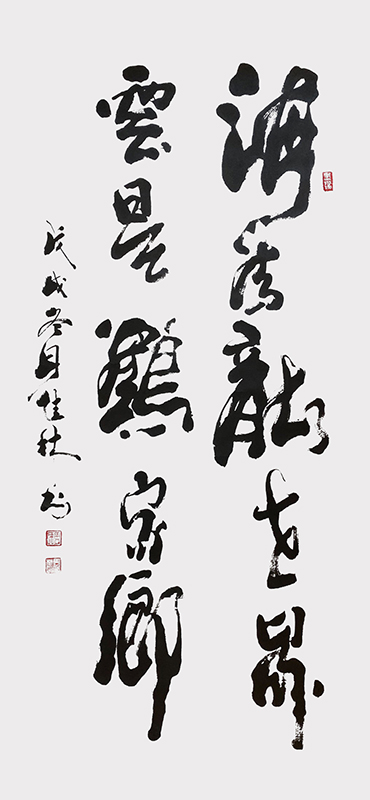 海為龍世界
雲是鶴家鄉
戊戌冬月佳秋